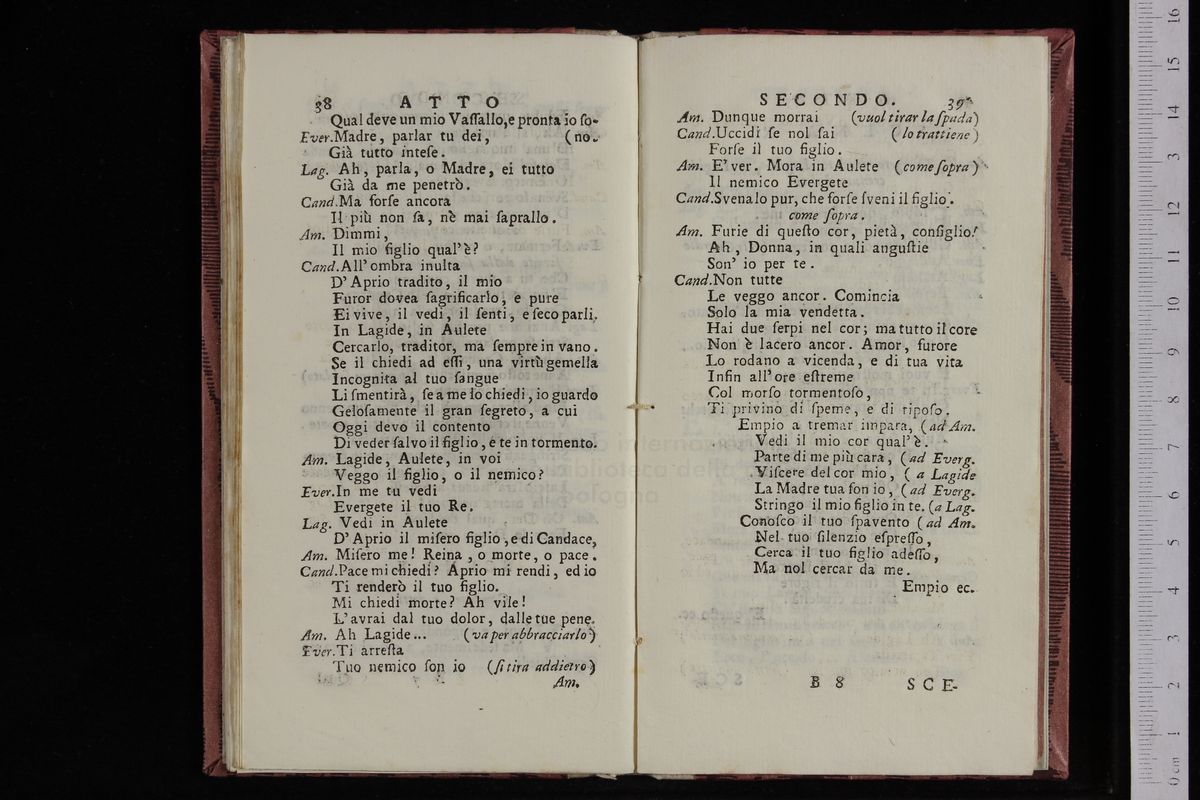 38 ATTO
Qual deve un mio Vaſſallo,e pronta io ſo-
Ever.Madre, parlar tu dei, (no.
Già tutto inteſe.
Lag. Ah, parla, o Madre, ei tutto
Già da me penetrò.
Cand.Ma forſe ancora
Il più non ſa, nè mai ſaprallo.
Am. Dimmi,
Il mio figlio qual'è?
Cand.All' ombra inulta
D' Aprio tradito, il mio
Furor dovea ſagrificarlo, e pure
Ei vive, il vedi, il ſenti, e ſeco parli.
In Lagide, in Aulete
Cercarlo, traditor, ma ſempre in vano.
Se il chiedi ad eſſi, una virtù gemella
Incognita al tuo ſangue
Li ſmentirà, ſe a me lo chiedi, io guardo
Geloſamente il gran ſegreto, a cui
Oggi devo il contento
Di veder ſalvo il figlio, e te in tormento.
Am. Lagide, Aulete, in voi
Veggo il figlio, o il nemico?
Ever.In me tu vedi
Evergete il tuo Re.
Lag. Vedi in Aulete
D' Aprio il miſero figlio, e di Candace,
Am. Miſero me! Reina, o morte, o pace.
Cand.Pace mi chiedi? Aprio mi rendi, ed io
Ti renderò il tuo figlio.
Mi chiedi morte? Ah vile!
L' avrai dal tuo dolor, dalle tue pene.
Am. Ah Lagide... (va per abbracciarlo)
Ever.Ti arreſta
Tuo nemico ſon io (ſi tira addietro)
Am.
SECONDO. 39
Am. Dunque morrai (vuol tirar la ſpada)
Cand.Uccidi ſe nol ſai (lo trattiene)
Forſe il tuo figlio.
Am. E' ver. Mora in Aulete (come ſopra)
Il nemico Evergete
Cand.Svenalo pur, che forſe ſveni il figlio.
come ſopra.
Am. Furie di queſto cor, pietà, conſiglio!
Ah, Donna, in quali anguſtie
Son' io per te.
Cand.Non tutte
Le veggo ancor. Comincia
Solo la mia vendetta.
Hai due ſerpi nel cor; ma tutto il core
Non è lacero ancor. Amor, furore
Lo rodano a vicenda, e di tua vita
Infin all' ore eſtreme
Col morſo tormentoſo,
Ti privino di ſpeme, e di ripoſo.
Empio a tremar impara, (ad Am.
Vedi il mio cor qual'è.
Parte di me più cara, (ad Everg.
Viſcere del cor mio, (a Lagide
La Madre tua ſon io, (ad Everg.
Stringo il mio figlio in te. (a Lag.
Conoſco il tuo ſpavento (ad Am.
Nel tuo ſilenzio eſpreſſo,
Cerca il tuo figlio adeſſo,
Ma nol cercar da me.
Empio ec.
B 8 SCE-